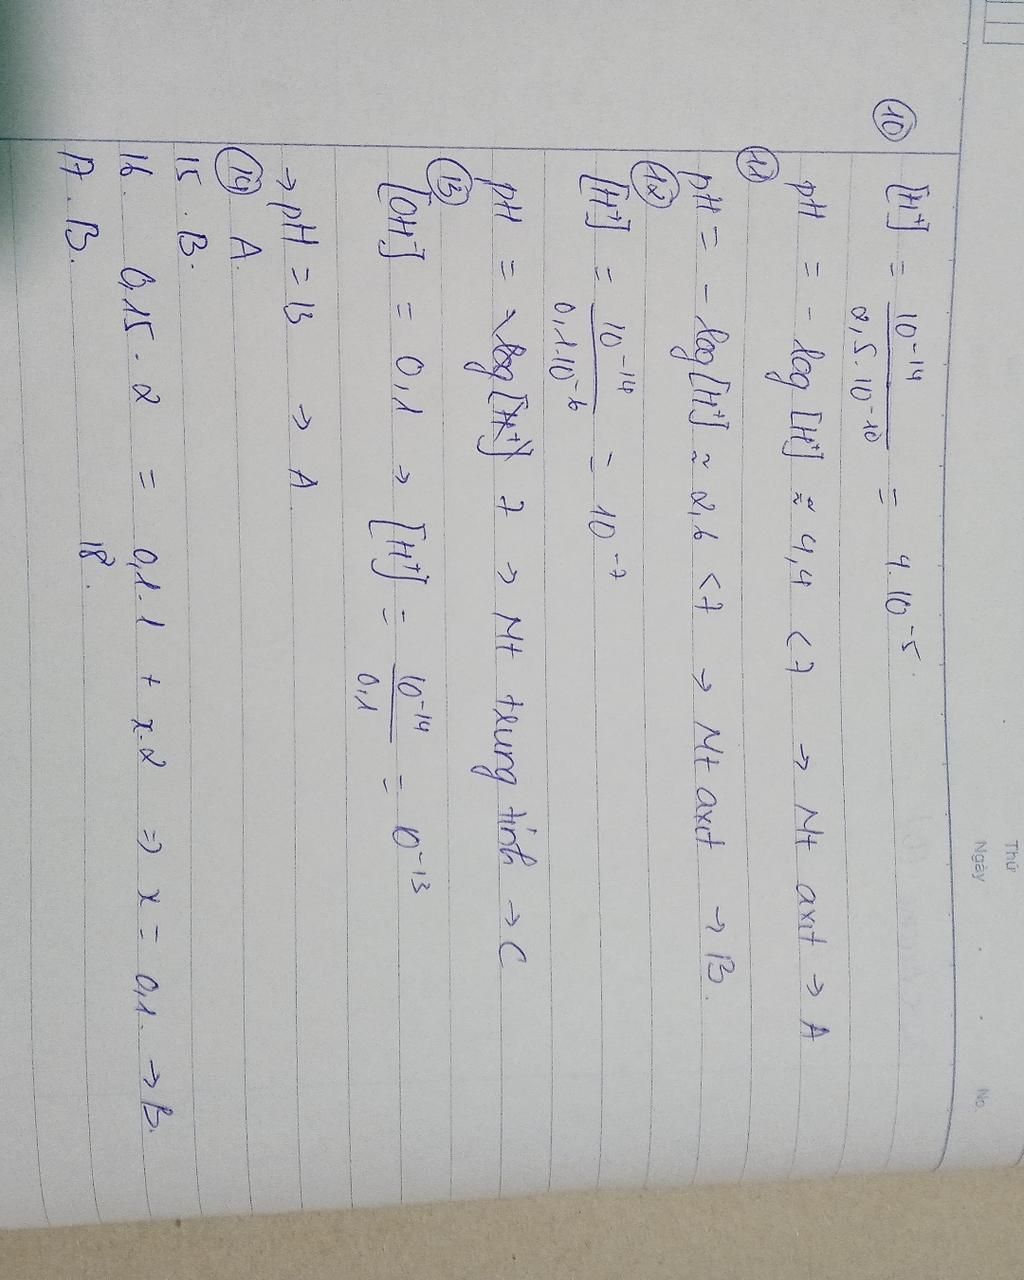 Thứ
Ngày . . No.
⑩ [H⁺] = 10⁻¹⁴ / 2,5.10⁻¹⁰ = 4.10⁻⁵.
pH = - log [H⁺] ≈ 4,4 < 7 → Mt axit → A
⑪ pH = - log[H⁺] ≈ 2,6 < 7 → Mt axit → B.
⑫ [H⁺] = 10⁻¹⁴ / 0,1.10⁻⁶ = 10⁻⁷
pH = 7 → Mt trung tính → C
⑬ [OH⁻] = 0,1 → [H⁺] = 10⁻¹⁴ / 0,1 = 10⁻¹³
→ pH = 13 → A.
⑭ A.
15. B.
16. 0,15.2 = 0,1.1 + x.2 ⇒ x = 0,1. → B.
17. B. 18.